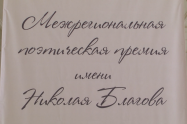 Межрегиональная
поэтическая премия
имени
Николая Благова